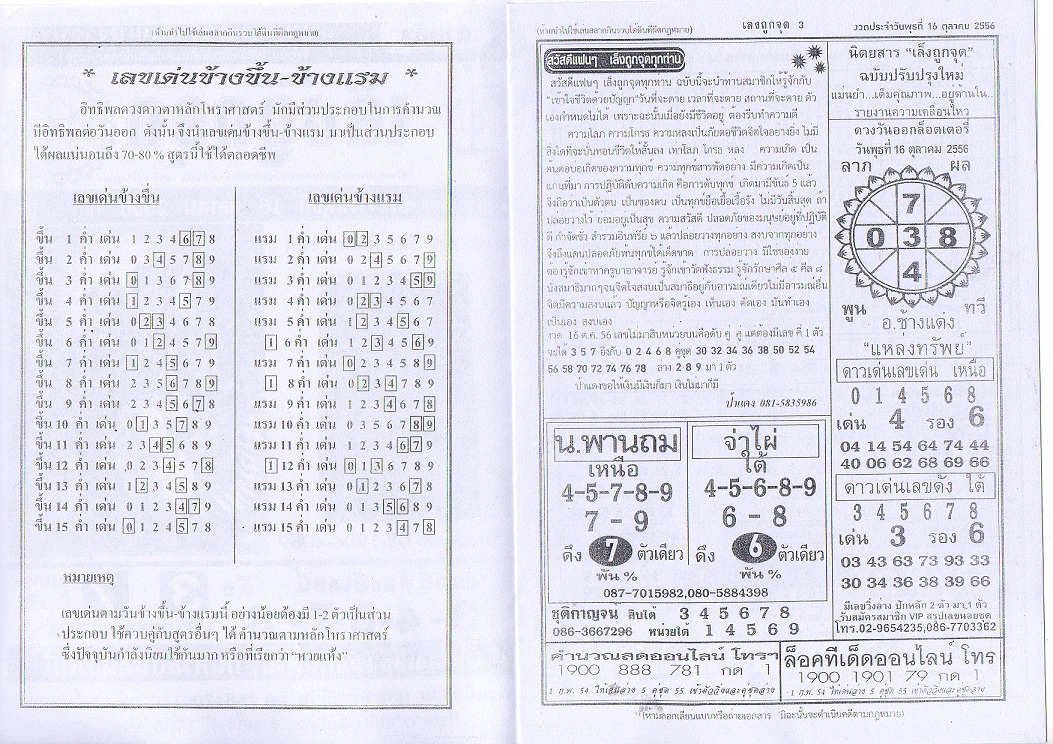 (ห้ามนำไปใช้เล่นสลากกินรวบได้ดินที่ผิดกฎหมาย)
* เลขเด่นข้างขึ้น-ข้างแรม *
อิทธิพลดวงดาวตาหลักโหราศาสตร์ มักมีส่วนประกอบในการคำนวณ
มีอิทธิพลต่อวันออก ดังนั้น จึงนำเลขเด่นข้างขึ้น-ข้างแรม มาเป็นส่วนประกอบ
ได้ผลแน่นอนถึง 70-80 % สูตรนี้ใช้ได้ตลอดชีพ
เลขเด่นข้างขึ้น
ขึ้น 1 ค่ำ เด่น 1 2 3 4 6 7 8
ขึ้น 2 ค่ำ เด่น 0 3 4 5 7 8 9
ขึ้น 3 ค่ำ เด่น 0 1 3 6 7 8 9
ขึ้น 4 ค่ำ เด่น 1 2 3 4 5 7 9
ขึ้น 5 ค่ำ เด่น 0 2 3 4 6 7 8
ขึ้น 6 ค่ำ เด่น 0 1 2 4 5 7 9
ขึ้น 7 ค่ำ เด่น 1 2 4 5 6 7 9
ขึ้น 8 ค่ำ เด่น 2 3 5 6 7 8 9
ขึ้น 9 ค่ำ เด่น 2 3 4 5 6 7 8
ขึ้น 10 ค่ำ เด่น 0 1 3 5 7 8 9
ขึ้น 11 ค่ำ เด่น 2 3 4 5 6 8 9
ขึ้น 12 ค่ำ เด่น 0 2 3 4 5 7 8
ขึ้น 13 ค่ำ เด่น 1 2 3 4 5 8 9
ขึ้น 14 ค่ำ เด่น 0 1 2 3 4 7 9
ขึ้น 15 ค่ำ เด่น 0 1 2 4 5 7 8
เลขเด่นข้างแรม
แรม 1 ค่ำ เด่น 0 2 3 5 6 7 9
แรม 2 ค่ำ เด่น 0 2 4 5 6 7 9
แรม 3 ค่ำ เด่น 0 1 2 3 4 5 9
แรม 4 ค่ำ เด่น 0 2 3 4 5 6 7
แรม 5 ค่ำ เด่น 1 2 3 5 6 7
1 6 ค่ำ เด่น 1 2 3 4 5 6 9
แรม 7 ค่ำ เด่น 0 2 3 4 5 8 9
1 8 ค่ำ เด่น 0 2 3 4 7 8 9
แรม 9 ค่ำ เด่น 1 2 3 4 6 7 8
แรม 10 ค่ำ เด่น 0 3 5 6 7 8 9
แรม 11 ค่ำ เด่น 1 2 3 4 6 7 9
1 12 ค่ำ เด่น 0 1 3 6 7 8 9
แรม 13 ค่ำ เด่น 0 1 2 3 6 7 8
แรม 14 ค่ำ เด่น 0 1 3 5 6 8 9
แรม 15 ค่ำ เด่น 0 1 2 3 4 7 8
หมายเหตุ
เลขเด่นตามวันข้างขึ้น-ข้างแรมนี้ อย่างน้อยต้องมี 1-2 ตัวเป็นส่วน
ประกอบ ใช้ควบคู่กับสูตรอื่นๆ ได้ คำนวณตามหลักโหราศาสตร์
ซึ่งปัจจุบันกำลังนิยมใช้กันมาก หรือที่เรียกว่า “หวยแห้ง”
(ห้ามนำไปใช้เล่นสลากกินรวบได้ดินที่ผิดกฎหมาย) เลงถูกจุด 3 งวดประจำวันพุธที่ 16 ตุลาคม 2556
สวัสดีแฟนๆ เล็งถูกจุดทุกท่าน
สวัสดีแฟนๆ เล็งถูกจุดทุกท่าน ฉบับนี้จะนำท่านสมาชิกให้รู้จักกับ
"เข้าใจชีวิตด้วยปัญญา"วันที่จะตาย เวลาที่จะตาย สถานที่จะตาย ตัว
เองกำหนดไม่ได้ เพราะฉะนั้นเมื่อยังมีชีวิตอยู่ ต้องรีบทำความดี
ความโลภ ความโกรธ ความหลงเป็นภัยต่อชีวิตจิตใจอย่างยิ่ง ไม่มี
สิ่งใดที่จะบั่นทอนชีวิตให้สั้นลง เท่าโลภ โกรธ หลง ความเกิด เป็น
ต้นตอบ่อเกิดของความทุกข์ ความทุกข์สารพัดอย่าง มีความเกิดเป็น
แกนที่มา การปฏิบัติดับความเกิด คือการดับทุกข์ เกิดมามีขันธ์ 5 แล้ว
จึงถือว่าเป็นตัวตน เป็นของตน เป็นทุกข์ยืดเยื้อเรื้อรัง ไม่มีวันสิ้นสุด ถ้า
ปล่อยวางไว้ ย่อมอยู่เป็นสุข ความสวัสดี ปลอดภัยของมนุษย์อยู่ที่ปฏิบัติ
ดี กำจัดชั่ว สำรวมอินทรีย์ ๖ แล้วปล่อยวางทุกอย่าง สงบจากทุกอย่าง
จึงถึงแดนปลอดภัยพ้นทุกข์ได้เด็ดขาด การปล่อยวาง มิใช่ของง่าย
ต้องรู้จักเข้าหาครูบาอาจารย์ รู้จักเข้าวัดฟังธรรม รู้จักรักษาศีล ๕ ศีล ๘
นั่งสมาธิมากๆจนจิตใจสงบเป็นสมาธิอยู่กับอารมณ์เดียวไม่มีอารมณ์อื่น
จิตมีความสงบแล้ว ปัญญาหรือจิตรู้เอง เห็นเอง คัดเอง มันทำเอง
เป็นเอง สงบเอง
งวด 16 ต.ค. 56 เลขไม่มาสิบหน่วยบนคือดับ คู่ คู่ แต่ต้องมีเลข คี่ 1 ตัว
จะได้ 3 5 7 ยิงกับ 0 2 4 6 8 คู่ชุด 30 32 34 36 38 50 52 54
56 58 70 72 74 76 78 ล่าง 2 8 9 มา 1 ตัว
ป๋าแดงขอให้เงินมีเงินก็มา เงินไม่มาก็มี
ป๋าแดง 081-5835986
น.พานถม
เหนือ
4-5-7-8-9
7 - 9
ดึง 7 ตัวเดียว
พัน %
จ่าไผ่
ใต้
4-5-6-8-9
6 - 8
ดึง 6 ตัวเดียว
พัน %
087-7015982,080-5884398
ชุติกาญจน์ สิบใต้ 3 4 5 6 7 8
086-3667296 หน่วยใต้ 1 4 5 6 9
นิตยสาร “เล็งถูกจุด”
ฉบับปรับปรุงใหม่
แม่นยำ...เต็มคุณภาพ...อยู่ด้านใน..
รายงานความเคลื่อนไหว
ดวงวันออกล็อตเตอรี่
วันพุธที่ 16 ตุลาคม 2556
ลาภ ผล
7
0 3 8
4
พูน ทวี
อ.ช้างแดง
“แหล่งทรัพย์”
ดาวเด่นเลขเด่น เหนือ
0 1 4 5 6 8
เด่น 4 รอง 6
04 14 54 64 74 44
40 06 62 68 69 66
ดาวเด่นเลขดัง ใต้
3 4 5 6 7 8
เด่น 3 รอง 6
03 43 63 73 93 33
30 34 36 38 39 66
มีเลขวิ่งล่าง ปักหลัก 2 ตัว มา 1 ตัว
รับสมัครสมาชิก VIP สรุปเลขหลายชุด
โทร.02-9654235,086-7703362
คำนวณสดออนไลน์ โทรฯ
1900 888 781 กด 1
1 ก.พ. 54 ให้เด่นล่าง 5 คู่ชุด 55 เข้าตัววิ่งและคู่ชุดล่าง
ล็อคทีเด็ดออนไลน์ โทร
1900 1901 79 กด 1
1 ก.พ. 54 ให้เด่นล่าง 5 คู่ชุด 55 เข้าตัววิ่งและคู่ชุดล่าง
(ห้ามลอกเลียนแบบหรือถ่ายเอกสาร มิฉะนั้นจะดำเนินคดีตามกฎหมาย)